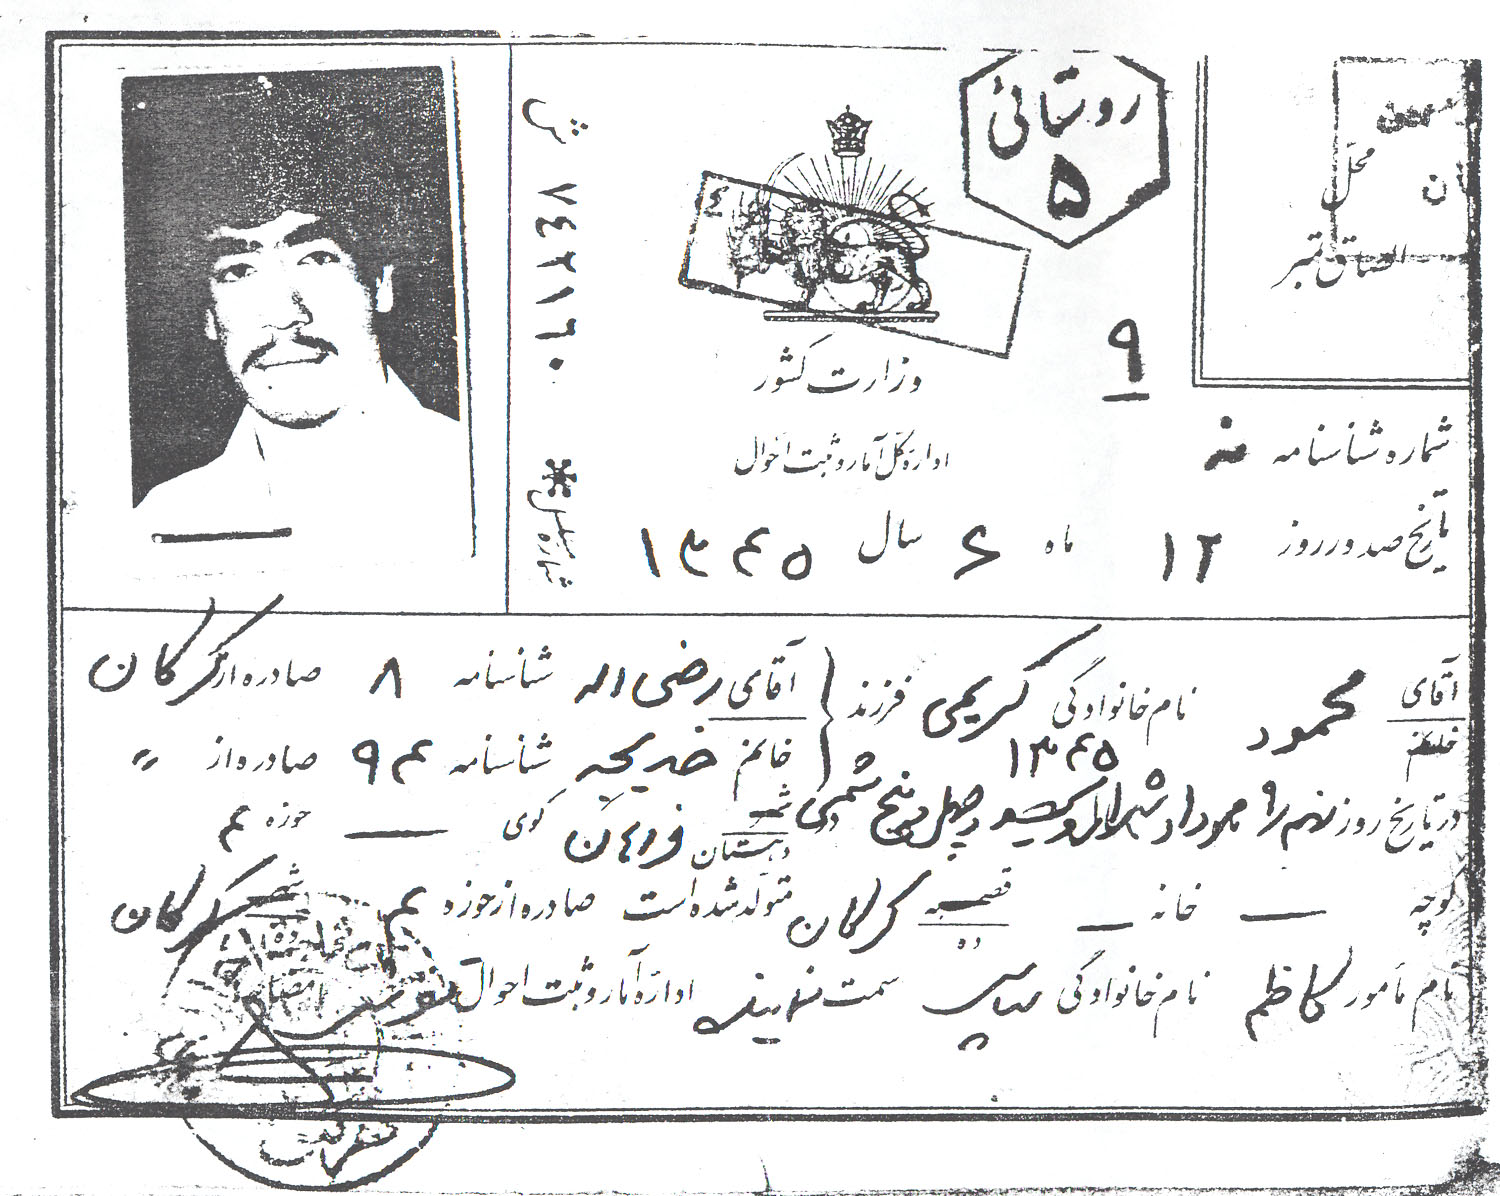 روستائی
۵
محل
الصاق تمبر
وزارت کشور
اداره کل آمار و ثبت احوال
۹
شماره شناسنامه نه
تاریخ صدور روز ۱۲ ماه ۶ سال ۱۳۴۵
ش ۷۴۲۱۶۰
شماره
آقای محمود نام خانوادگی کریمی فرزند آقای رضی اله شناسنامه ۸ صادره از گرگان
خانم ۱۳۴۵ خانم خدیجه شناسنامه ۹۴ صادره از "
در تاریخ روز نهم ۹ مرداد یکهزار و سیصد و چهل و پنج شمسی در شهر دهستان کوی — حوزه ۴
کوچه — خانه — قصبه ده متولد شده است صادره از حوزه ۴ شهر
نام مأمور کاظم نام خانوادگی سمت اداره آمار و ثبت احوال